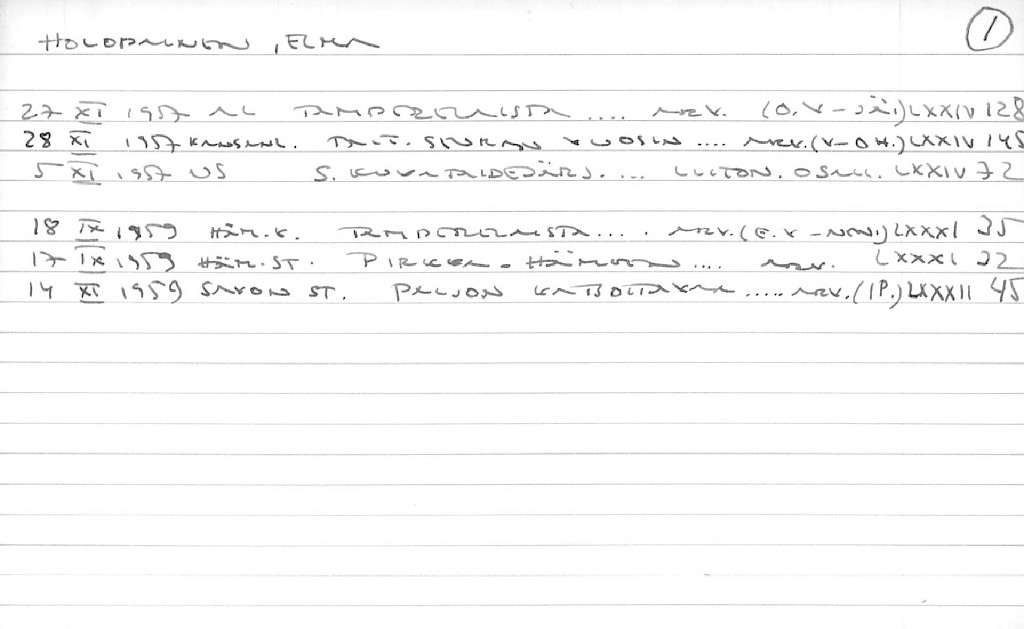 HOLOPAINEN, ELMA
1
27 XI 1957 AL TAMPERELAISTA .... ARV. (O.V-JÄI) LXXIV 128
28 XI 1957 KANSANL. TAIT. SEURAN VUOSIN .... ARV. (V-OH.) LXXIV 145
5 XI 1957 US S. KUVATAIDEJÄRJ. ... LIITON. OSALL. LXXIV 72
18 IX 1959 HÄM.K. TAMPERELAISTA .... ARV. (E.V-NEN.) LXXXI 35
17 IX 1959 HÄM.ST. PIRKKA-HÄMEEN .... ARV. LXXXI 22
14 XI 1959 SAVON ST. PALJON KATSOTTAVAA ..... ARV. (IP.) LXXXII 45